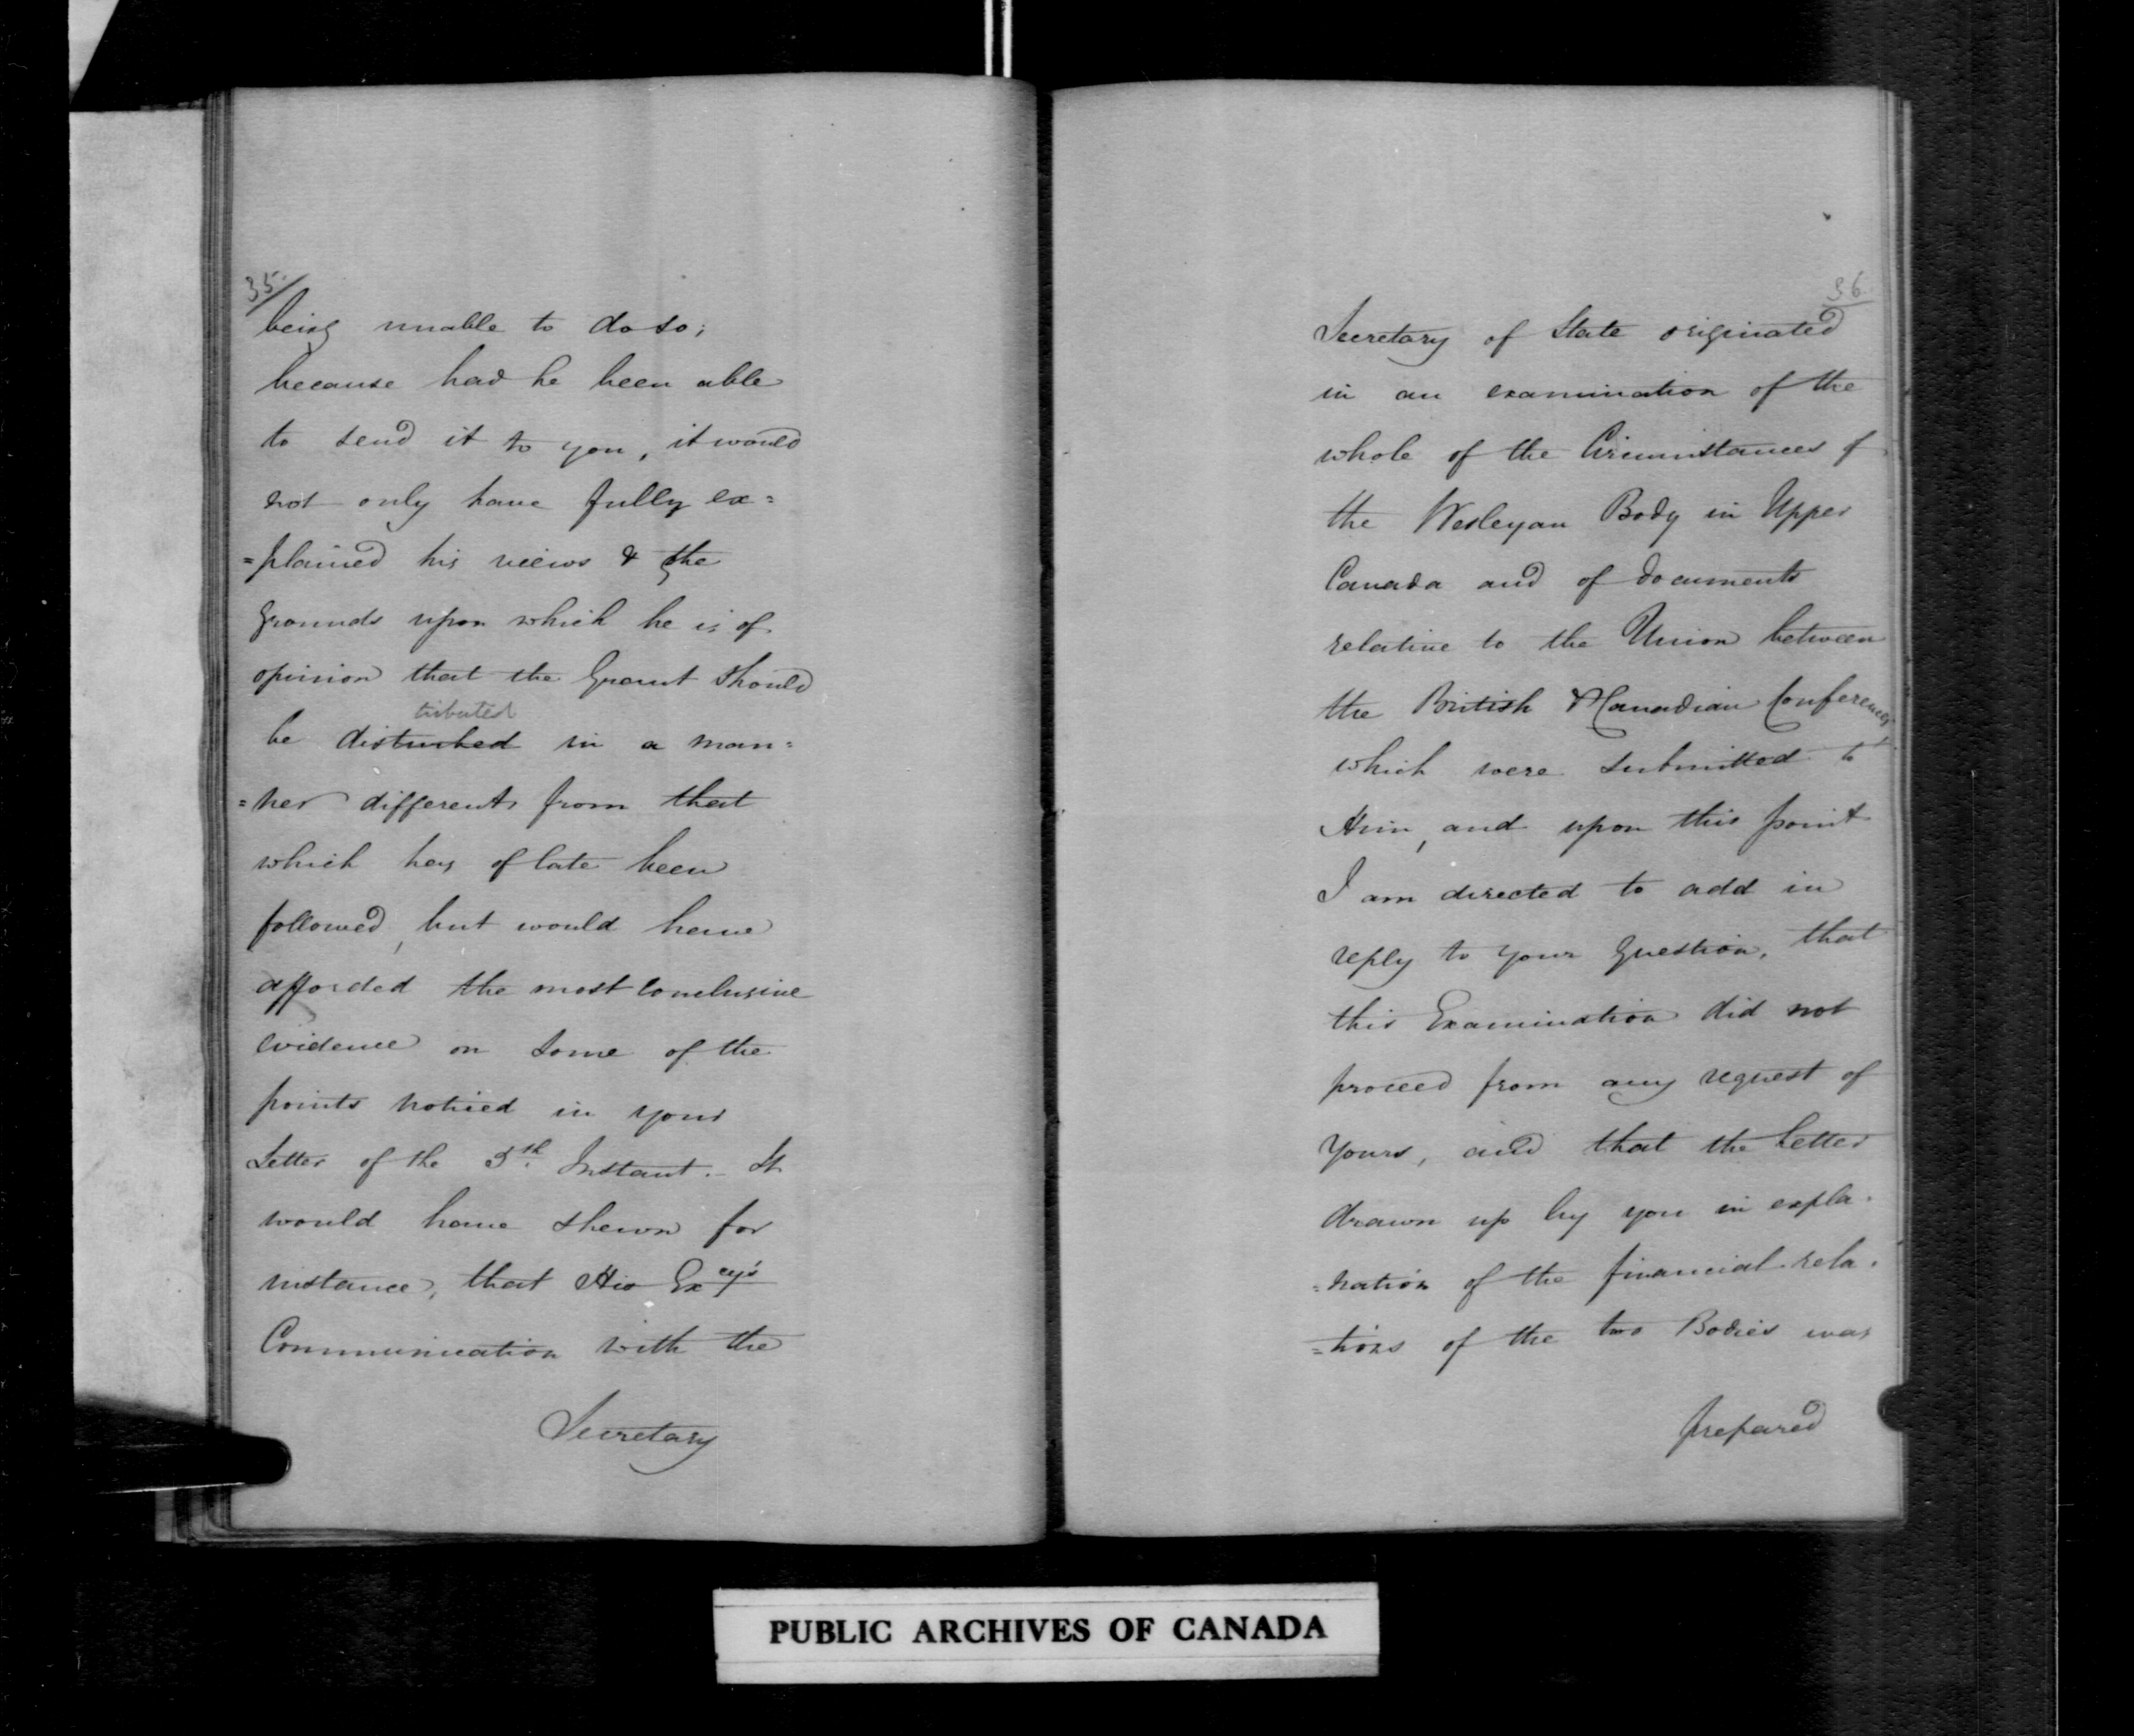 35.
being unable to do so;
because had he been able
to send it to you, it would
not only have fully ex=
=plained his views & the
grounds upon which he is of
opinion that the Grant should
tributed
be disturbed in a man=
=ner different from that
which has of late been
followed, but would have
afforded the most conclusive
evidence on some of the
points noticed in your
Letter of the 5th. Instant. It
would have shewn for
instance, that His Excy's
Communication with the
Secretary
36
Secretary of State originated
in an examination of the
whole of the Circumstances of
the Wesleyan Body in Upper
Canada and of documents
relative to the Union between
the British & Canadian Conferences
which were submitted to
Him, and upon this point
I am directed to add in
reply to your question, that
this Examination did not
proceed from any request of
Yours, and that the Letter
drawn up by you in expla=
=nation of the financial rela=
=tions of the two Bodies was
prepared
PUBLIC ARCHIVES OF CANADA